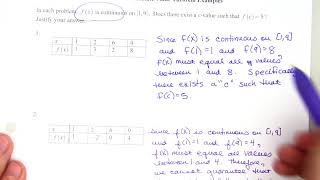 In each problem, f(x) is continuous on [1, 9]. Does there exist a c-value such that f(c) = 8?
Justify your answer.
1.
Since f(x) is continuous on [1,9]
and f(1)=1 and f(9)=8
f(x) must equal all values
between 1 and 8. Specifically
there exists a "c" such that
f(c)=5.
x 1 2 6 9
f(x) 1
2.
since f(x) is continuous on [1,9]
and f(1)=1 and f(9)=4,
f(x) must equal all values
between 1 and 4. Therefore,
we cannot guarantee that
x
f(x)